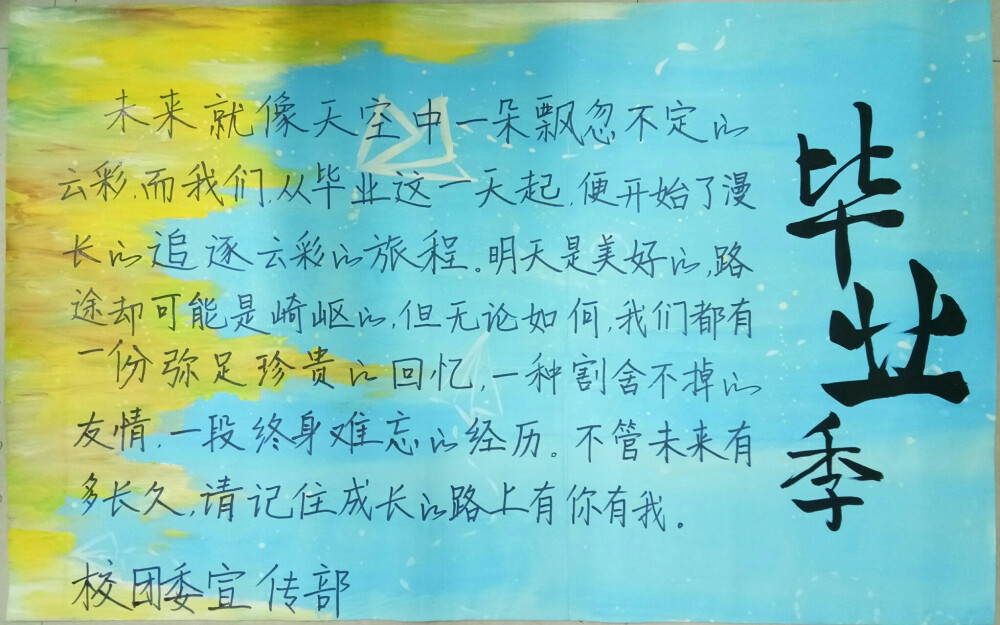 毕业季
未来就像天空中一朵飘忽不定的
云彩,而我们,从毕业这一天起,便开始了漫
长的追逐云彩的旅程。明天是美好的,路
途却可能是崎岖的,但无论如何,我们都有
一份弥足珍贵的回忆,一种割舍不掉的
友情,一段终身难忘的经历。不管未来有
多长久,请记住成长的路上有你有我。
校团委宣传部